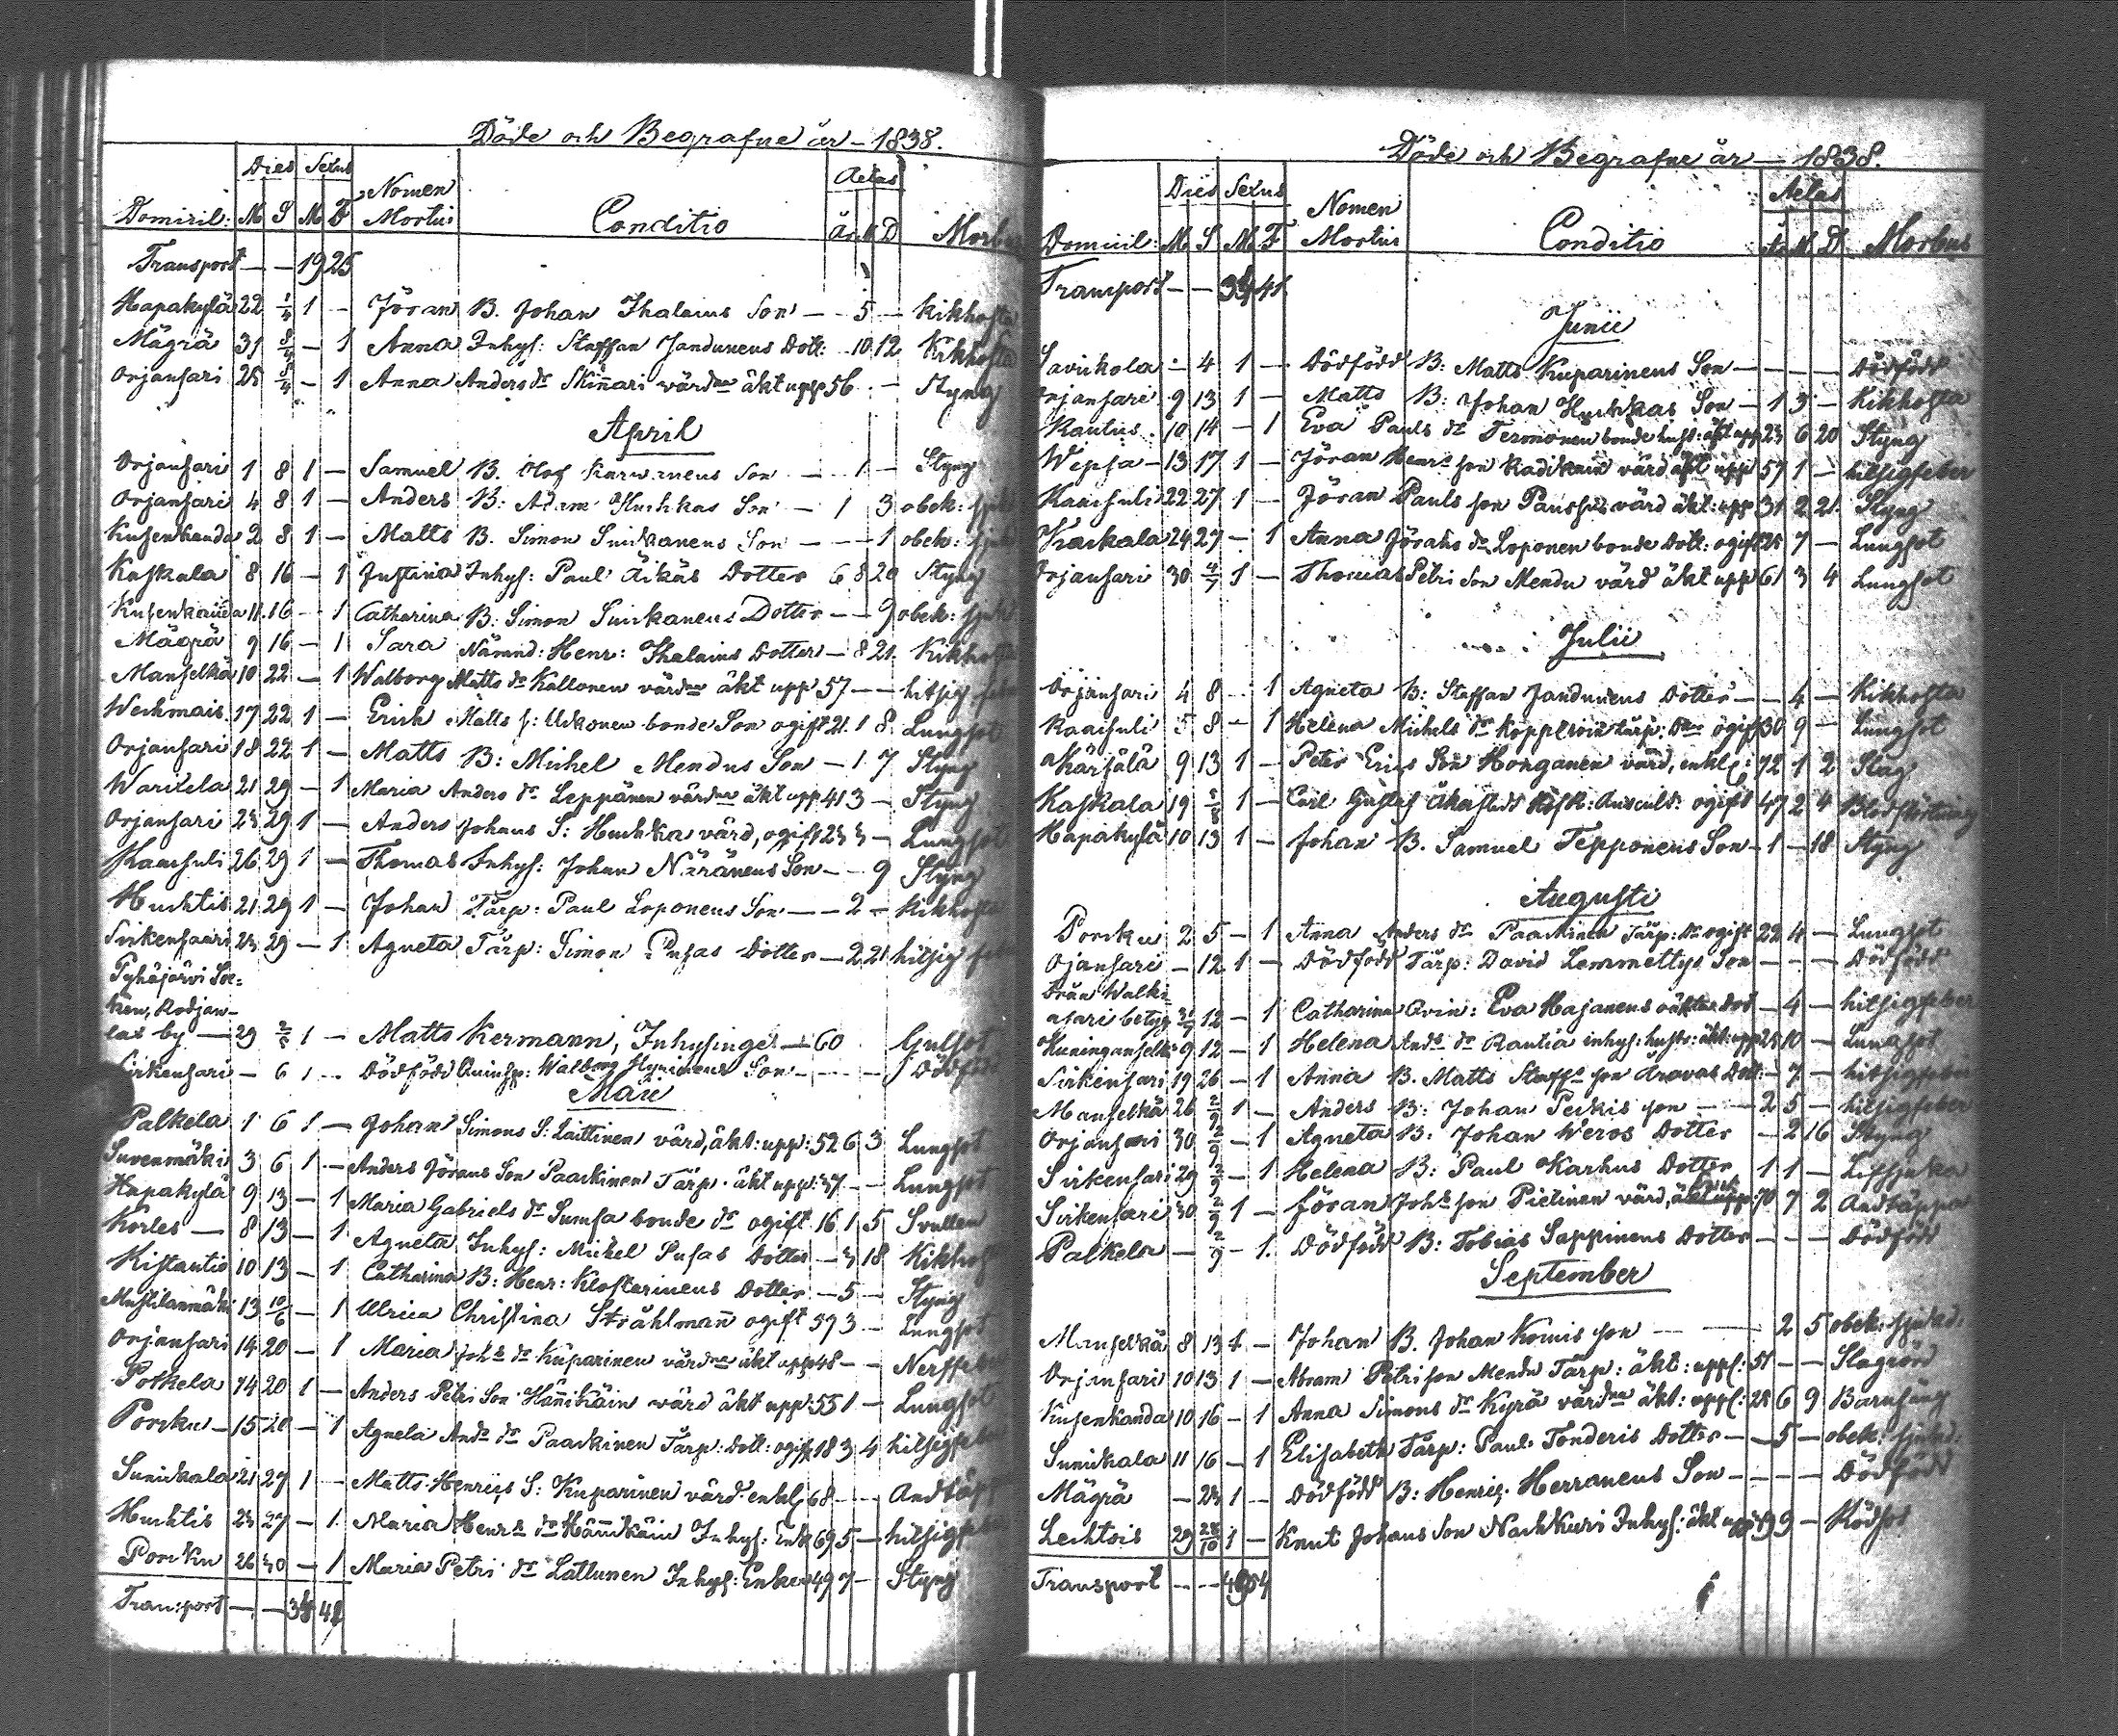 Döde och Begrafne år - 1838.
Dies Sexus Nomen Aetas
Domicil: M S M F Mortui Conditio År M D Morbus
Transport — — 19 25
Hapakylä 22 1/4 1 — Jöran B. Johan Ihalains Son — 5 — Kikhosta
Mägrä 31 8/4 — 1 Anna Inhys: Staffan Jandunens Dott: — 10 12 Kikhosta
Orjansari 25 8/4 — 1 Anna Anders dr Skinnari värdna äkt upp 56 — Styng
April
Orjansari 1 8 1 — Samuel B. Olof Karwanens Son — 1 — Styng
Orjansari 4 8 1 — Anders B. Adam Huchkas Son — 1 3 obek: sjuk
Kusenkanda 2 8 1 — Matts B. Simon Sinkanens Son — — 1 obek: sjuk
Kaskala 8 16 — 1 Justina Inhys: Paul Äikäs Dotter 6 8 20 Styng
Kusenkanda 11 16 — 1 Catharina B: Simon Sinkanens Dotter — — 9 obek: sjuk
Mägrä 9 16 — 1 Sara Nämnd: Henr: Ihalains Dotter — 8 21 Kikhosta
Manselkä 10 22 — 1 Walborg Matts dr Kallonen värdna äkt upp 57 — — hitsig feber
Wechmais 17 22 1 — Erich Matts s: Ukonen bonde Son ogift 21 1 8 Lungsot
Orjansari 18 22 1 — Matts B: Michel Mendus Son — 1 7 Styng
Waritela 21 29 — 1 Maria Anders dr Leppänen värdna äkt upp 41 3 — Styng
Orjansari 23 29 1 — Anders Johans S: Huchka värd, ogift 23 3 — Lungsot
Kaachsuli 26 29 1 — Thomas Inhys: Johan Näränens Son — — 9 Styng
Huchtis 21 29 1 — Johan Tarp: Paul Loponens Son — — 2 — Kikhosta
Sirkensaari 23 29 — 1 Agneta Tarp: Simon Pusas Dotter — 2 21 hitsig feber
Pyhäjärvi Soc=
ken, Rodjan-
lax by — 29 2/5 1 — Matts Kermann, Inhysinge — 60 Gulsot
Sirkensari — 6 1 — Dödfödd Quinsp: Walborg Hynninens Son — — — Dödfödd
Maii
Palkela 1 6 1 — Johan Simons S: Laittinen värd, äkt: upp: 52 6 3 Lungsot
Suvenmäki 3 6 1 — Anders Jörans Son Paackinen Tarp. äkt upp: 37 — — Lungsot
Hapakylä 9 13 — 1 Maria Gabriels dr Sumsa bonde dr ogift 16 1 5 Svullen
Korles — 8 13 — 1 Agneta Inhys: Michel Pusas Dotter — 3 18 Kikhosta
Kistantio 10 13 — 1 Catharina B: Henr: Klosterinens Dotter — 5 — Styng
Mustilanmäki 13 10/6 — 1 Ulrica Christina Stråhlmann ogift 59 3 — Lungsot
Orjansari 14 20 — 1 Maria Johs dr Kuparinen värdna äkt upp 48 — — Nerffeber
Potkela 14 20 1 — Anders Petri Son Hännikäin värd äkt upp: 55 1 — Lungsot
Porcku — 15 20 — 1 Agneta Ands dr Paackinen Tarp: Dott: ogift 18 3 4 hitsigfeber
Sunickala 21 27 1 — Matts Henrics S: Kuparinen värd enkl 68 — — Andtäppa
Huchtis 23 27 — 1 Maria Henrs dr Hännikäin Inhys: Enk 69 5 — hitsigfeber
Porcku 26 30 — 1 Maria Petri dr Lattunen Inhys: Enka 49 7 — Styng
Transport — — 34 41
Döde och Begrafne år — 1838.
Dies Sexus Nomen Aetas
Domicil: M S M F Mortui Conditio År M D Morbus
Transport — — 34 41
Junii
Savikola — 4 1 — Dödfödd B: Matts Kuparinens Son — — — Dödfödd
Orjansari 9 13 1 — Matts B: Johan Huchkas Son — 1 3 — Kikhosta
Rautus 10 14 — 1 Eva Pauls dr Termonen bonde hust: äkt upp 23 6 20 Styng
Wepsa — 13 17 1 — Jöran Henrs son Radikain värd äkt upp 57 1 — hitsigfeber
Kaachsuli 22 27 1 — Jöran Pauls son Paussu värd äkt: upp 31 2 21 Styng
Kackala 24 27 — 1 Anna Jörans dr Loponen bonde Dott: ogift 25 7 — Lungsot
Orjansari 30 4/7 1 — Thomas Petri Son Mendu värd äkt upp 61 3 4 Lungsot
Julii
Orjansari 4 8 — 1 Agneta B: Staffan Jandunens Dotter — 4 — Kikhosta
Kaachsuli 5 8 — 1 Helena Michels dr Kopploin tarp: Dtter ogift 30 9 — Lungsot
Kärsälä 9 13 1 — Peter Erics Son Honganen värd, enkl: 72 1 2 Slag
Kaskala 19 1/8 1 — Carl Gustaf Åkerstedt Hofr: Auscult: ogift 47 2 4 Blodstörtning
Hapakylä 10 13 1 — Johan B. Samuel Tepponens Son — 1 — 18 Styng
Augusti
Porcku 2 5 — 1 Anna Anders dr Paackinen Tarp: Dr ogift 22 4 — Lungsot
Ojansari — 12 1 — Dödfödd Tarp: David Lemmettys Son — — — Dödfödd
från Walki-
asari betyg 31/7 12 — 1 Catharina Qvin: Eva Hajanens oäkta Dott — 4 — hitsigfeber
Kuninganselkä 9 12 — 1 Helena Ands dr Rautia inhys: hustr: äkt: upp 25 10 — Lungsot
Sirkensari 19 26 — 1 Anna B. Matts Staffs son Äravas Dott: — 7 — hitsigfeber
Manselkä 26 2/9 1 — Anders B: Johan Peckis son — — 2 5 — hitsigfeber
Orjansari 30 2/9 — 1 Agneta B: Johan Weros Dotter — 2 16 Styng
Sirkensari 29 2/9 — 1 Helena B: Paul Karhus Dotter 1 1 — Lifssjuka
Sirkensari 30 2/9 1 — Jöran Johs son Pietinen värd, äkt upp: 70 7 2 Andtäppa
Palkela — 2/9 — 1. Dödfödd B: Tobias Sappinens Dotter — — — Dödfödd
September
Manselkä 8 13 1 — Johan B. Johan Komis son — — 2 5 obek: sjukd.
Orjansari 10 13 1 — Abram Petri son Mendu Tarp: äkt: upps: 51 — — Slagrörd
Kusenkanda 10 16 — 1 Anna Simons dr Kyrä värdna äkt: upps: 28 6 9 Barnsäng
Sunickala 11 16 — 1 Elisabeth Tarp: Paul Tonderis Dotter — — 5 — obek: sjukd.
Mägrä — 23 1 — Dödfödd B: Henric Herranens Son — — — — Dödfödd
Lechtois 29 28/10 1 — Knut Johans Son Nachkuri Inhys: äkt upp 49 9 — Rödsot
Transport — — 49 54